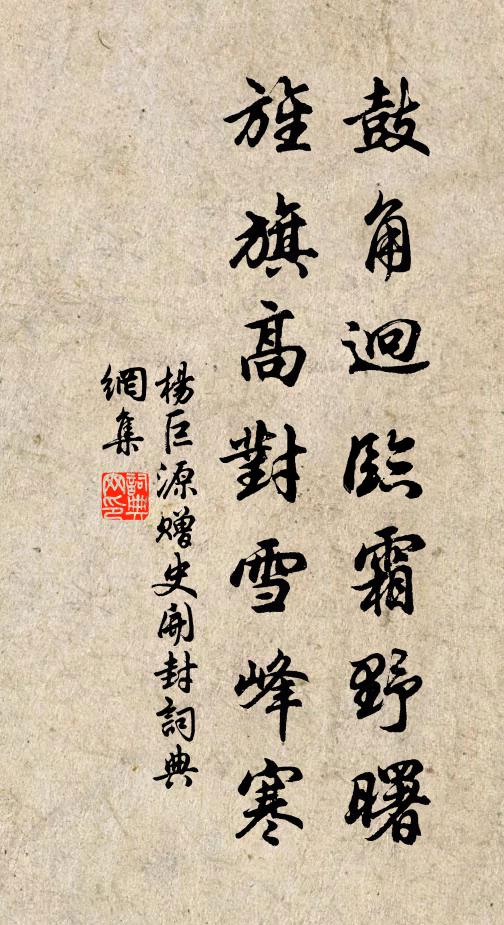 鼓角迥臨霜野曙
旌旗高對雪峰寒
楊巨源贈史開封詞典
網集
詞典
网印